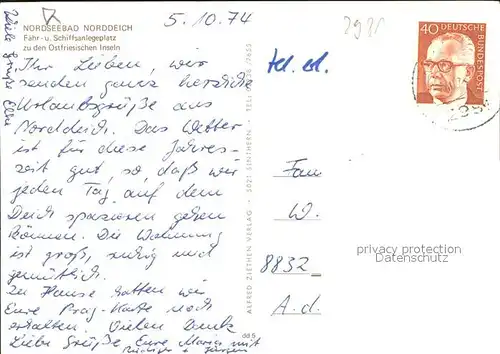 5.10.74
2981
NORDSEEBAD NORDDEICH
Fähr- u. Schiffsanlegeplatz
zu den Ostfriesischen Inseln
Ihr Lieben, wir
senden ganz herzliche
Urlaubsgrüße aus
Norddeich. Das Wetter
ist für diese Jahres-
zeit gut, so, daß wir
jeden Tag auf dem
Deich spazieren gehen
können. Die Wohnung
ist groß, ruhig und
gemütlich.
Zu Hause hatten wir
Eure Prag-Karte noch
erhalten. Vielen Dank
Liebe Grüße Eure Maria mit
Viele Grüße
ALFRED ZIETHEN VERLAG · 5021 SINTHERN · TEL.
dd 5
40
DEUTSCHE
BUNDESPOST
Fam
W.
8832
A.d.
privacy protection
Datenschutz